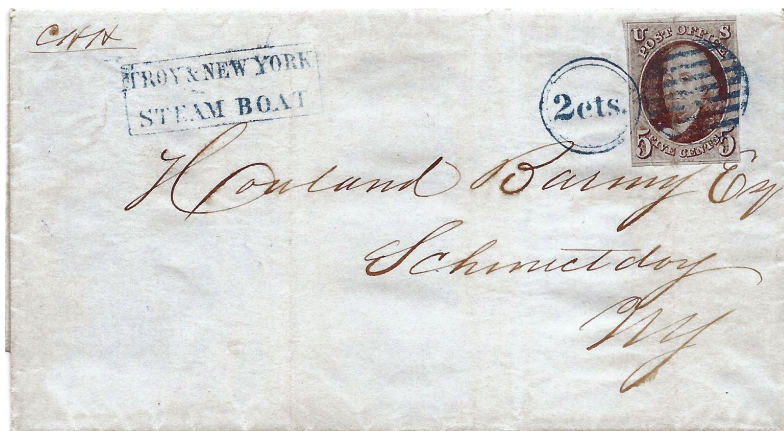 TROY & NEW YORK
STEAM BOAT
2cts.
U S
POST OFFICE
5 FIVE CENTS 5
Howland
Esq
Schenectdoy
NY